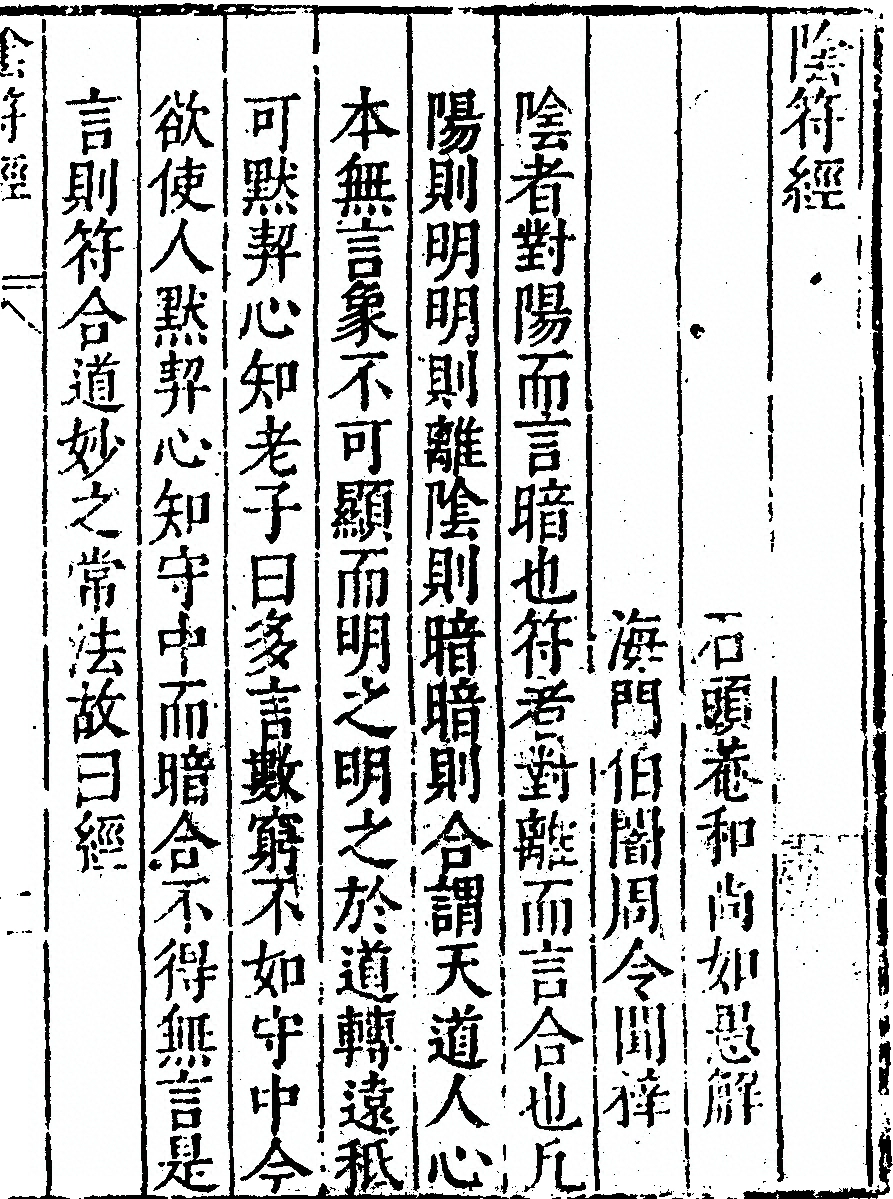 陰符經
石頭菴和尚如愚解
海門伯闇周令聞梓
陰者對陽而言暗也符者對離而言合也凡
陽則明明則離陰則暗暗則合謂天道人心
本無言象不可顯而明之明之於道轉遠秪
可默契心知老子曰多言數窮不如守中今
欲使人默契心知守中而暗合不得無言是
言則符合道妙之常法故曰經
陰符經